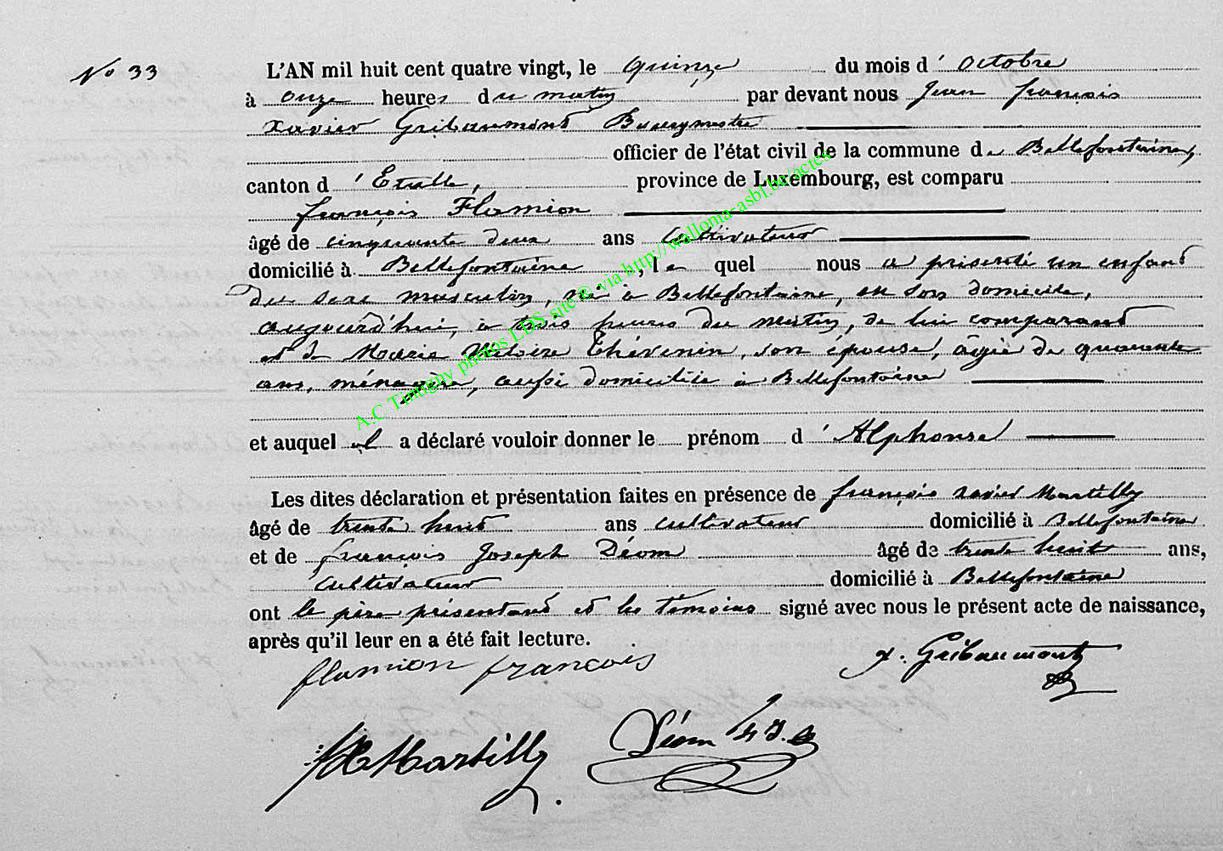 No 33
L'AN mil huit cent quatre vingt, le quinze du mois d'octobre
à onze heures du matin par devant nous Jean françois
Xavier Gribaumont Bourgmestre
officier de l'état civil de la commune de Bellefontaine,
canton d'Etalle, province de Luxembourg, est comparu
françois Flamion
âgé de cinquante deux ans cultivateur
domicilié à Bellefontaine, lequel nous a présenté un enfant
du sexe masculin, né à Bellefontaine, en son domicile,
aujourd'hui, à trois heures du matin, de lui comparant
et de Marie Victoire Thévenin, son épouse, âgée de quarante
ans, ménagère, aussi domiciliée à Bellefontaine
et auquel il a déclaré vouloir donner le prénom d'Alphonse
Les dites déclaration et présentation faites en présence de françois Xavier Martilly
âgé de trente huit ans cultivateur domicilié à Bellefontaine
et de françois Joseph Déom âgé de trente huit ans,
cultivateur domicilié à Bellefontaine
ont le père présentant et les témoins signé avec nous le présent acte de naissance,
après qu'il leur en a été fait lecture.
flamion françois
x. Gribaumont
Martilly
Déom
A.C Tintigny photos LDS site © via http://wallonia.asbl.be/actes